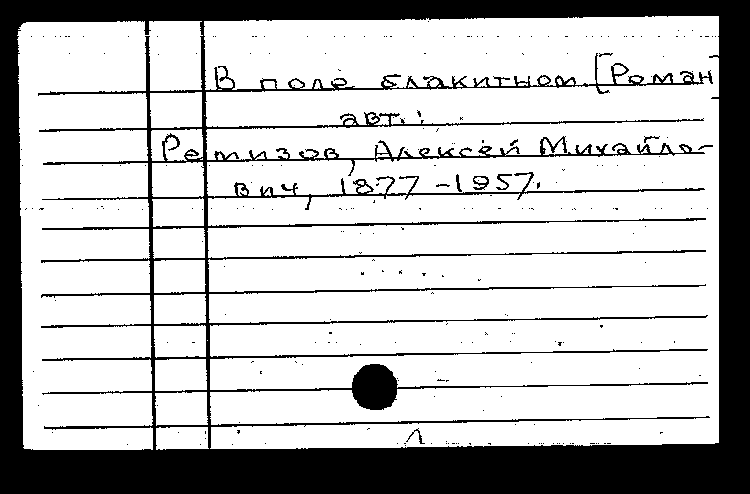 В поле блакитном [Роман]
авт.:
Ремизов, Алексей Михайло-
вич, 1877-1957.